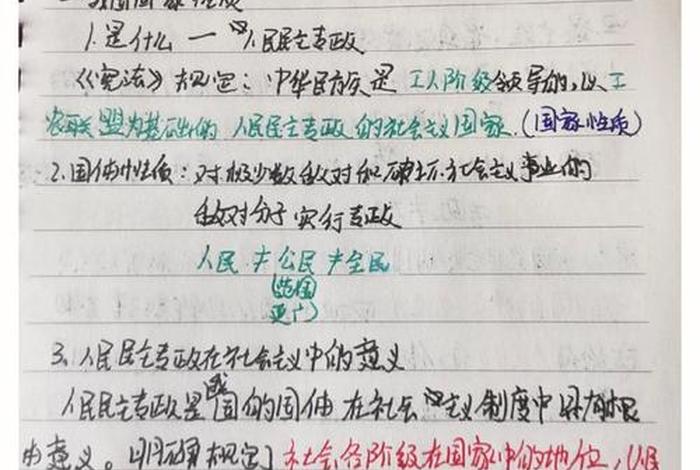 我国国家性质
1.是什么 — 人民民主专政
《宪法》规定：中华民族是工人阶级领导的，以工
农联盟为基础的 人民民主专政 的社会主义国家.(国家性质)
2.国体性质：对极少数敌对和破坏社会主义事业的
敌对分子实行专政
人民≠公民≠全民
(范围
更广)
3.人民民主专政在社会主义中的意义
人民民主专政是我国的国体 在社会主义制度中具有根
本意义。明确规定了社会各阶级在国家中的地位，